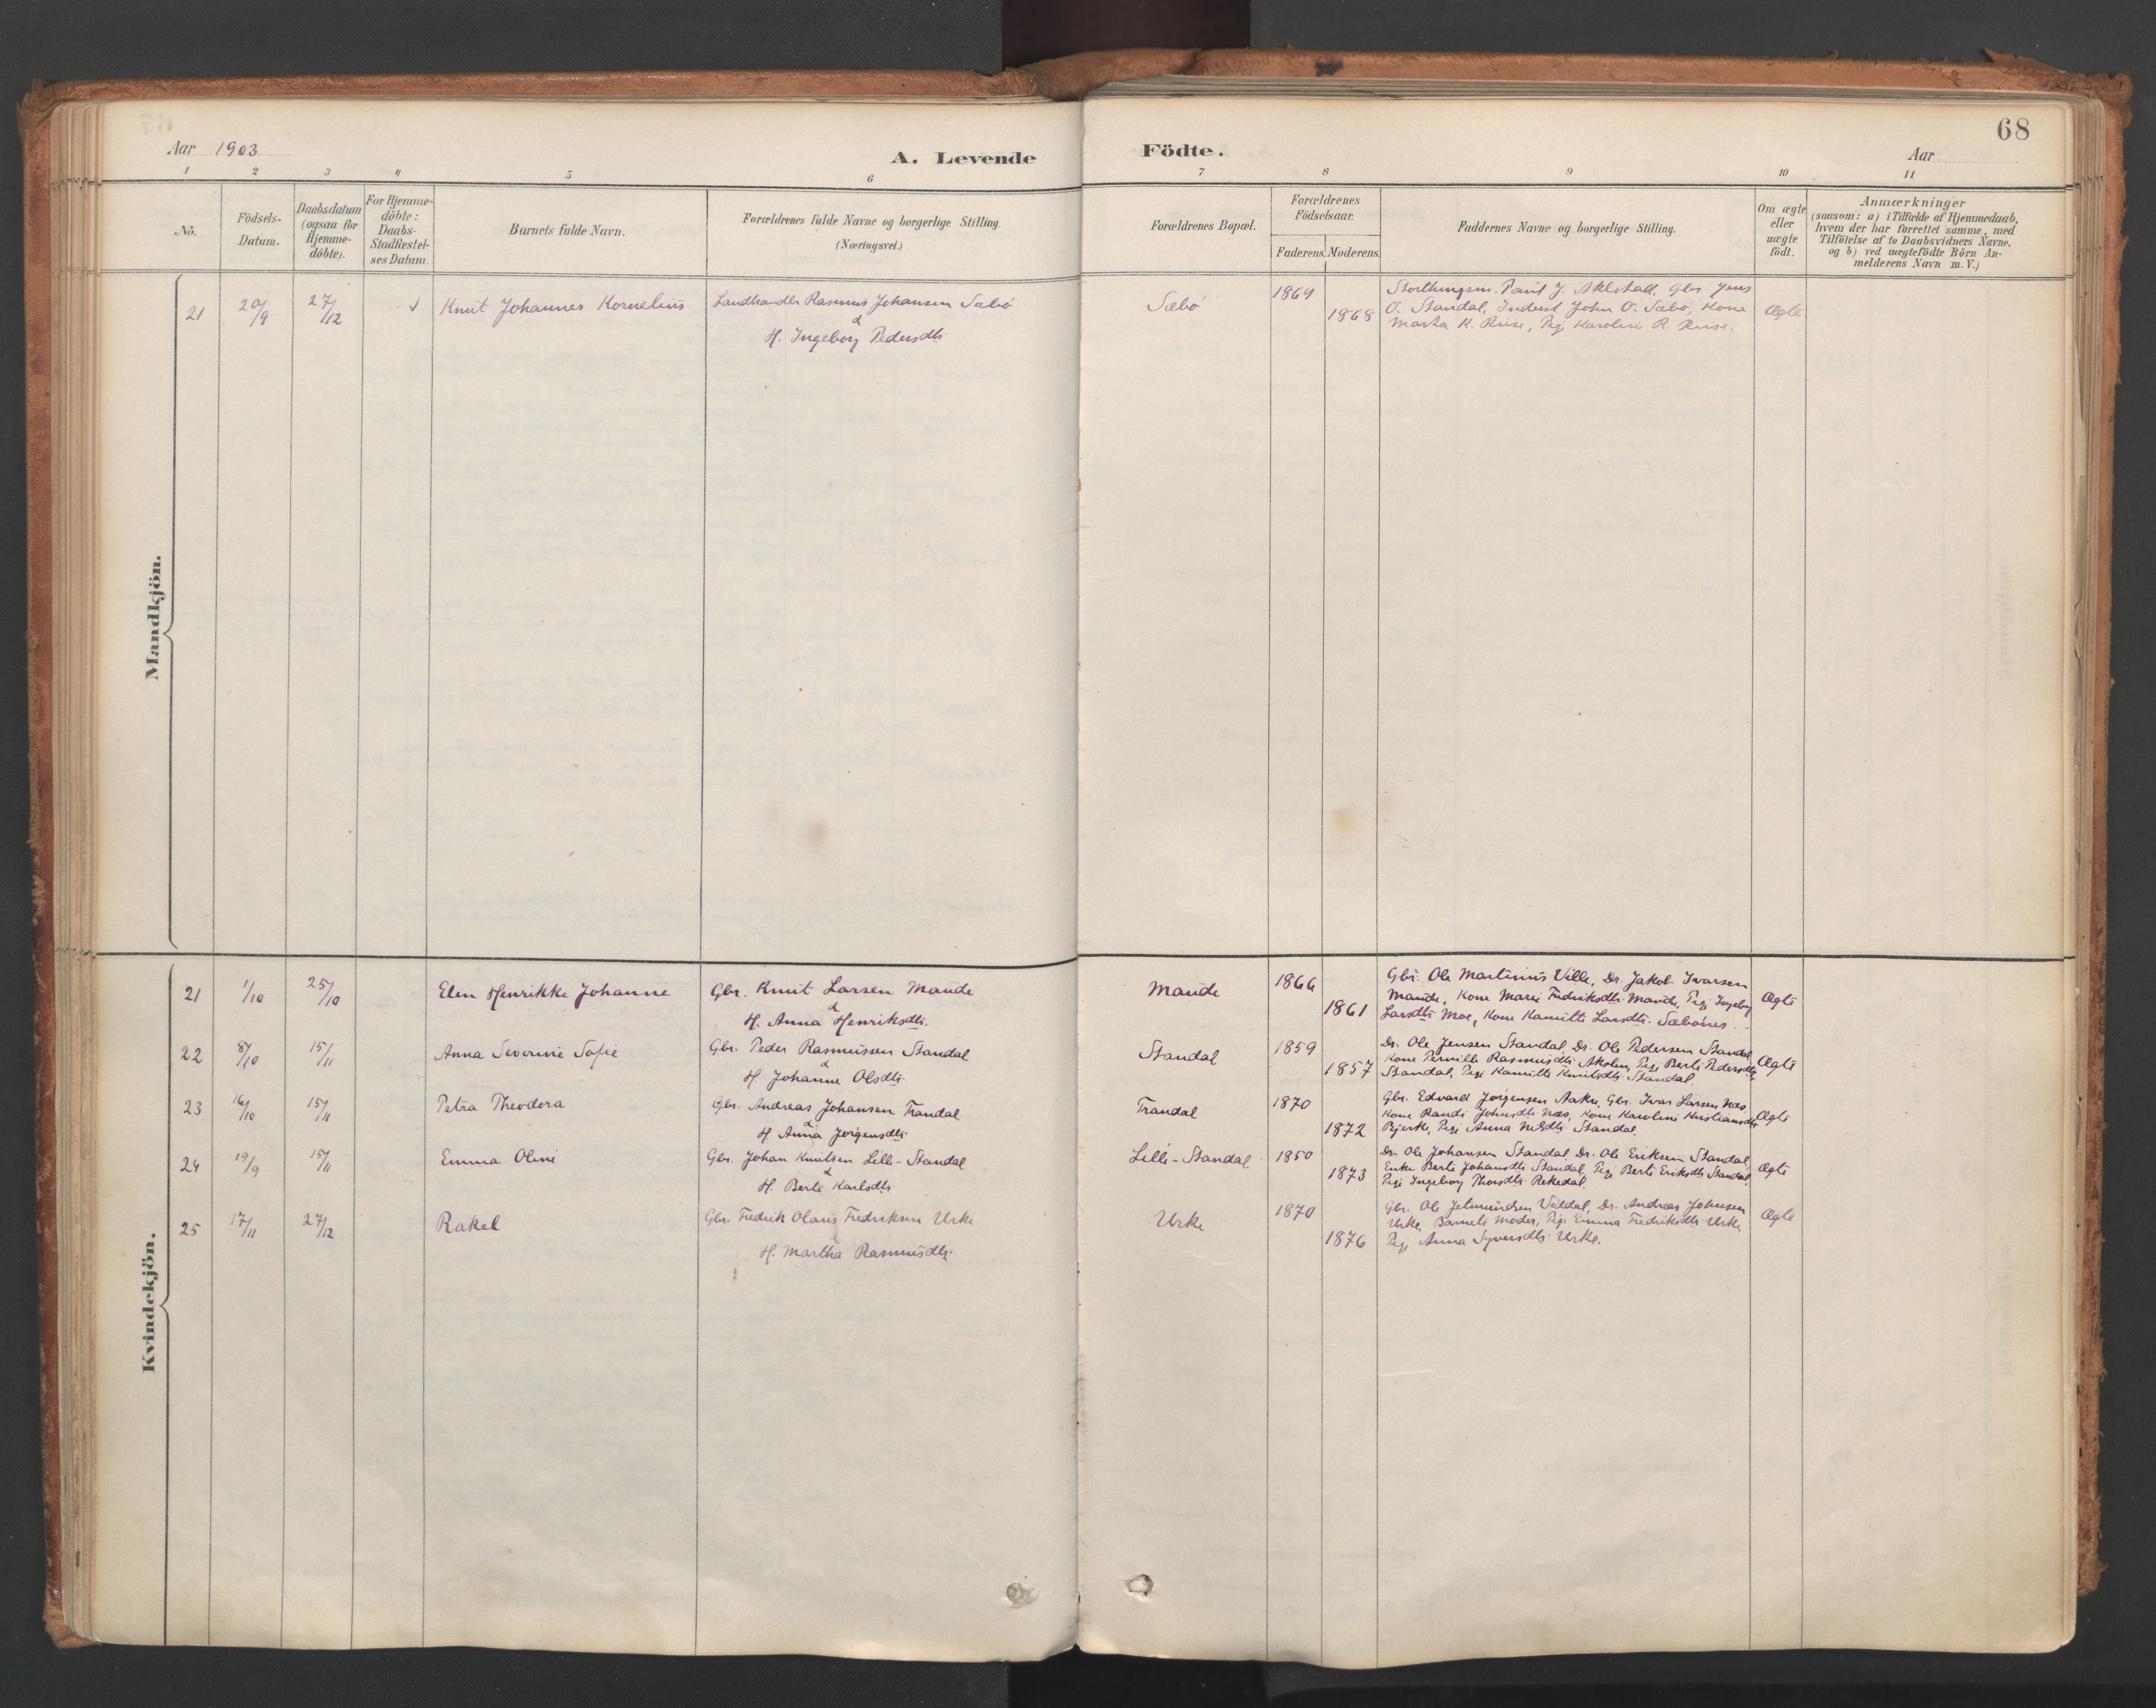 68
Aar 1903
A. Levende
Födte.
Aar
1 2 3 4 5 6 7 8 9 10 11
No.
Födsels-
Datum.
Daabsdatum
(ogsaa for
Hjemme-
döbte).
For Hjemme-
döbte:
Daabs-
Stadfæstel-
ses Datum.
Barnets fulde Navn.
Forældrenes fulde Navne og borgerlige Stilling.
(Næringsvei.)
Forældrenes Bopæl.
Forældrenes
Födselsaar.
Faderens. Moderens.
Faddernes Navne og borgerlige Stilling.
Om ægte
eller
uægte
födt.
Anmærkninger
(saasom: a) i Tilfælde af Hjemmedaab,
hvem der har forrettet samme, med
Tilföielse af to Daabsvidners Navne.
og b) ved uægtefödte Börn An-
melderens Navn m. V.)
Mandkjön.
21 20/9 27/12 Knut Johannes Kornelius
Landhandler Rasmus Johansen Sæbö
&
H. Ingeborg Pedersdtr
Sæbö 1864 1868
Storthingsm. Paul J. Aklestad, Gbr Jens
O. Standal, Inderst John O. Sæbö, Kone
Marta K. Riise, Pige Karoline R. Riise.
Ægte
Kvindekjön.
21 1/10 25/10 Elen Henrikke Johanne
Gbr. Knut Larsen Maude
&
H. Anna Henriksdtr.
Maude 1866 1861
Gbr. Ole Martinus Ville, Dr. Jakob Ivarsen
Maude, Kone Marie Fredriksdtr Maude, Pige Ingeborg
Larsdtr Moe, Kone Kamilte Larsdtr. Sæbönes.
Ægte
22 8/10 15/11 Anna Severine Sofie
Gbr. Peder Rasmussen Standal
&
H. Johanne Olsdtr.
Standal 1859 1857
Dr. Ole Jensen Standal, Dr. Ole Pedersen Standal,
Kone Pernille Rasmusdtr Akslen, Pige Berte Pedersdtr
Standal, Pige Kamitte Knutsdtr Standal.
Ægte
23 16/10 15/11 Petra Theodora
Gbr. Andreas Johansen Trandal
&
H. Anna Jörgensdtr
Trandal 1870 1872
Gbr. Edvard Jörgensen Aaker, Gbr. Ivar Larsen Næs,
Kone Randi Johnsdtr Næs, Kone Karoline Kristiansdtr
Bjerke, Pige Anna Nilsdtr Standal.
Ægte
24 19/9 15/11 Emma Oline
Gbr. Johan Knutsen Lille-Standal
&
H. Berte Karlsdtr
Lille-Standal 1850 1873
Dr. Ole Johansen Standal, Dr. Ole Eriksen Standal,
Enke Berte Johansdtr Standal, Pige Berte Eriksdtr Standal,
Pige Ingeborg Thorsdtr Rekedal.
Ægte
25 17/11 27/12 Rakel
Gbr. Fredrik Olaus Fredriksen Urke
&
H. Martha Rasmusdtr
Urke 1870 1876
Gbr. Ole Jetmundsen Viddal, Dr. Andreas Johnsen
Urke, Barnets Moder, Pige Emma Fredriksdtr Urke,
Pige Anna Syversdtr Urke.
Ægte